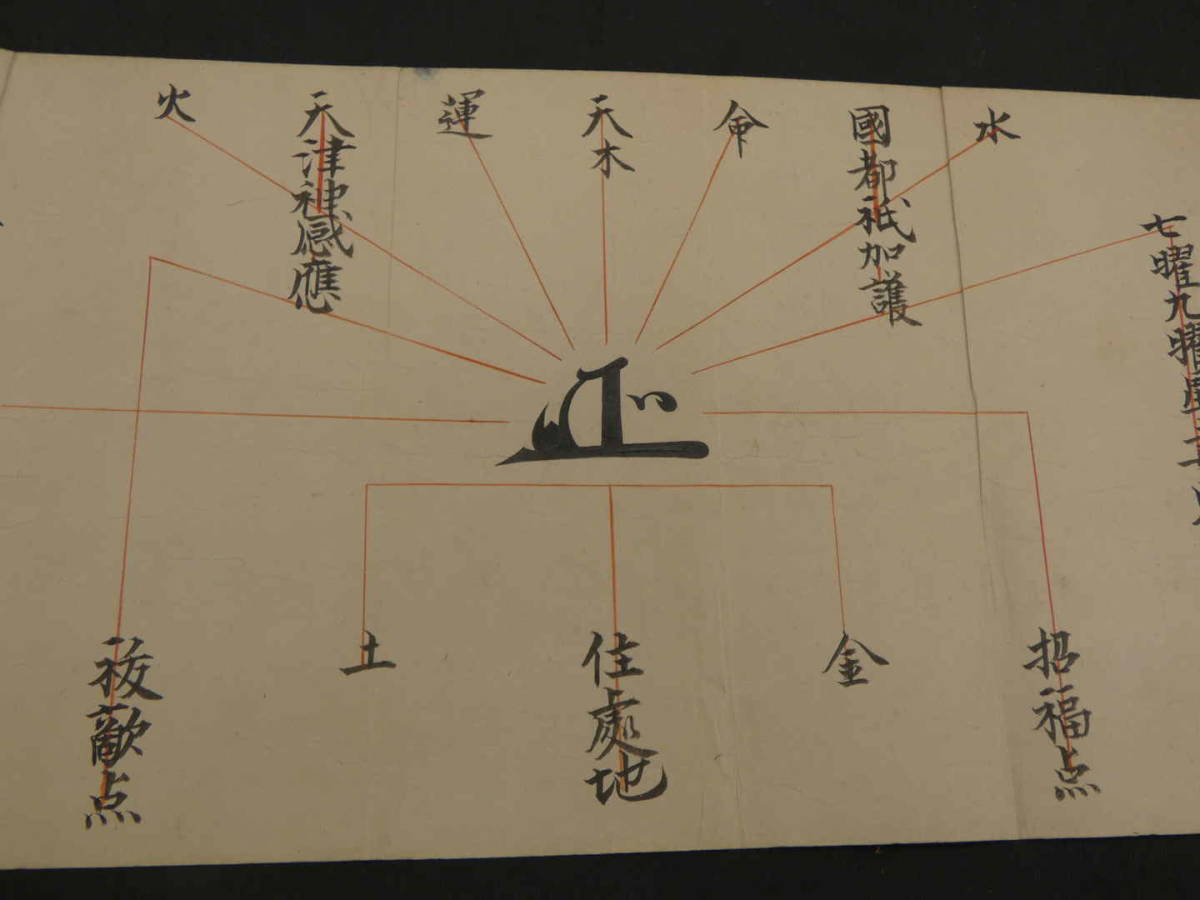 七曜九曜
水
國都祇加護
命
天
木
運
天津神感應
火
招福点
金
住處地
土
祓敵点